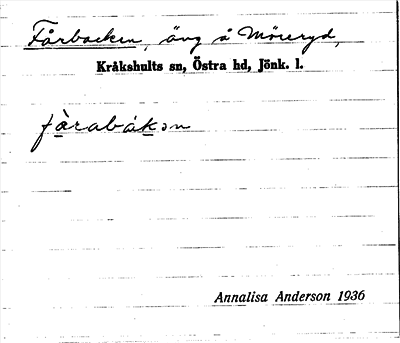 Fårbacken, äng å Möreryd,
Kråkshults sn, Östra hd, Jönk. l.
fàrabákən
Annalisa Anderson 1936